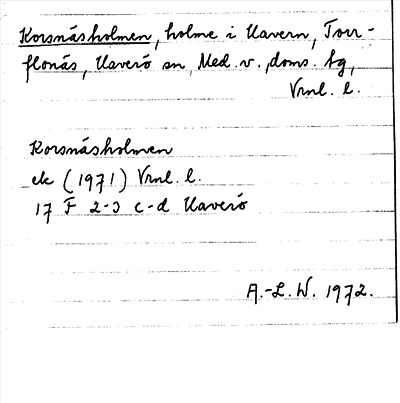 Korsnäsholmen, holme i Havern, Torr-
flonäs, Haverö sn, Med. v., doms. hg,
Vrnl. l.
Korsnäsholmen
ek (1971) Vrnl. l.
17 F 2-3 c-d Haverö
A.-L. W. 1972.